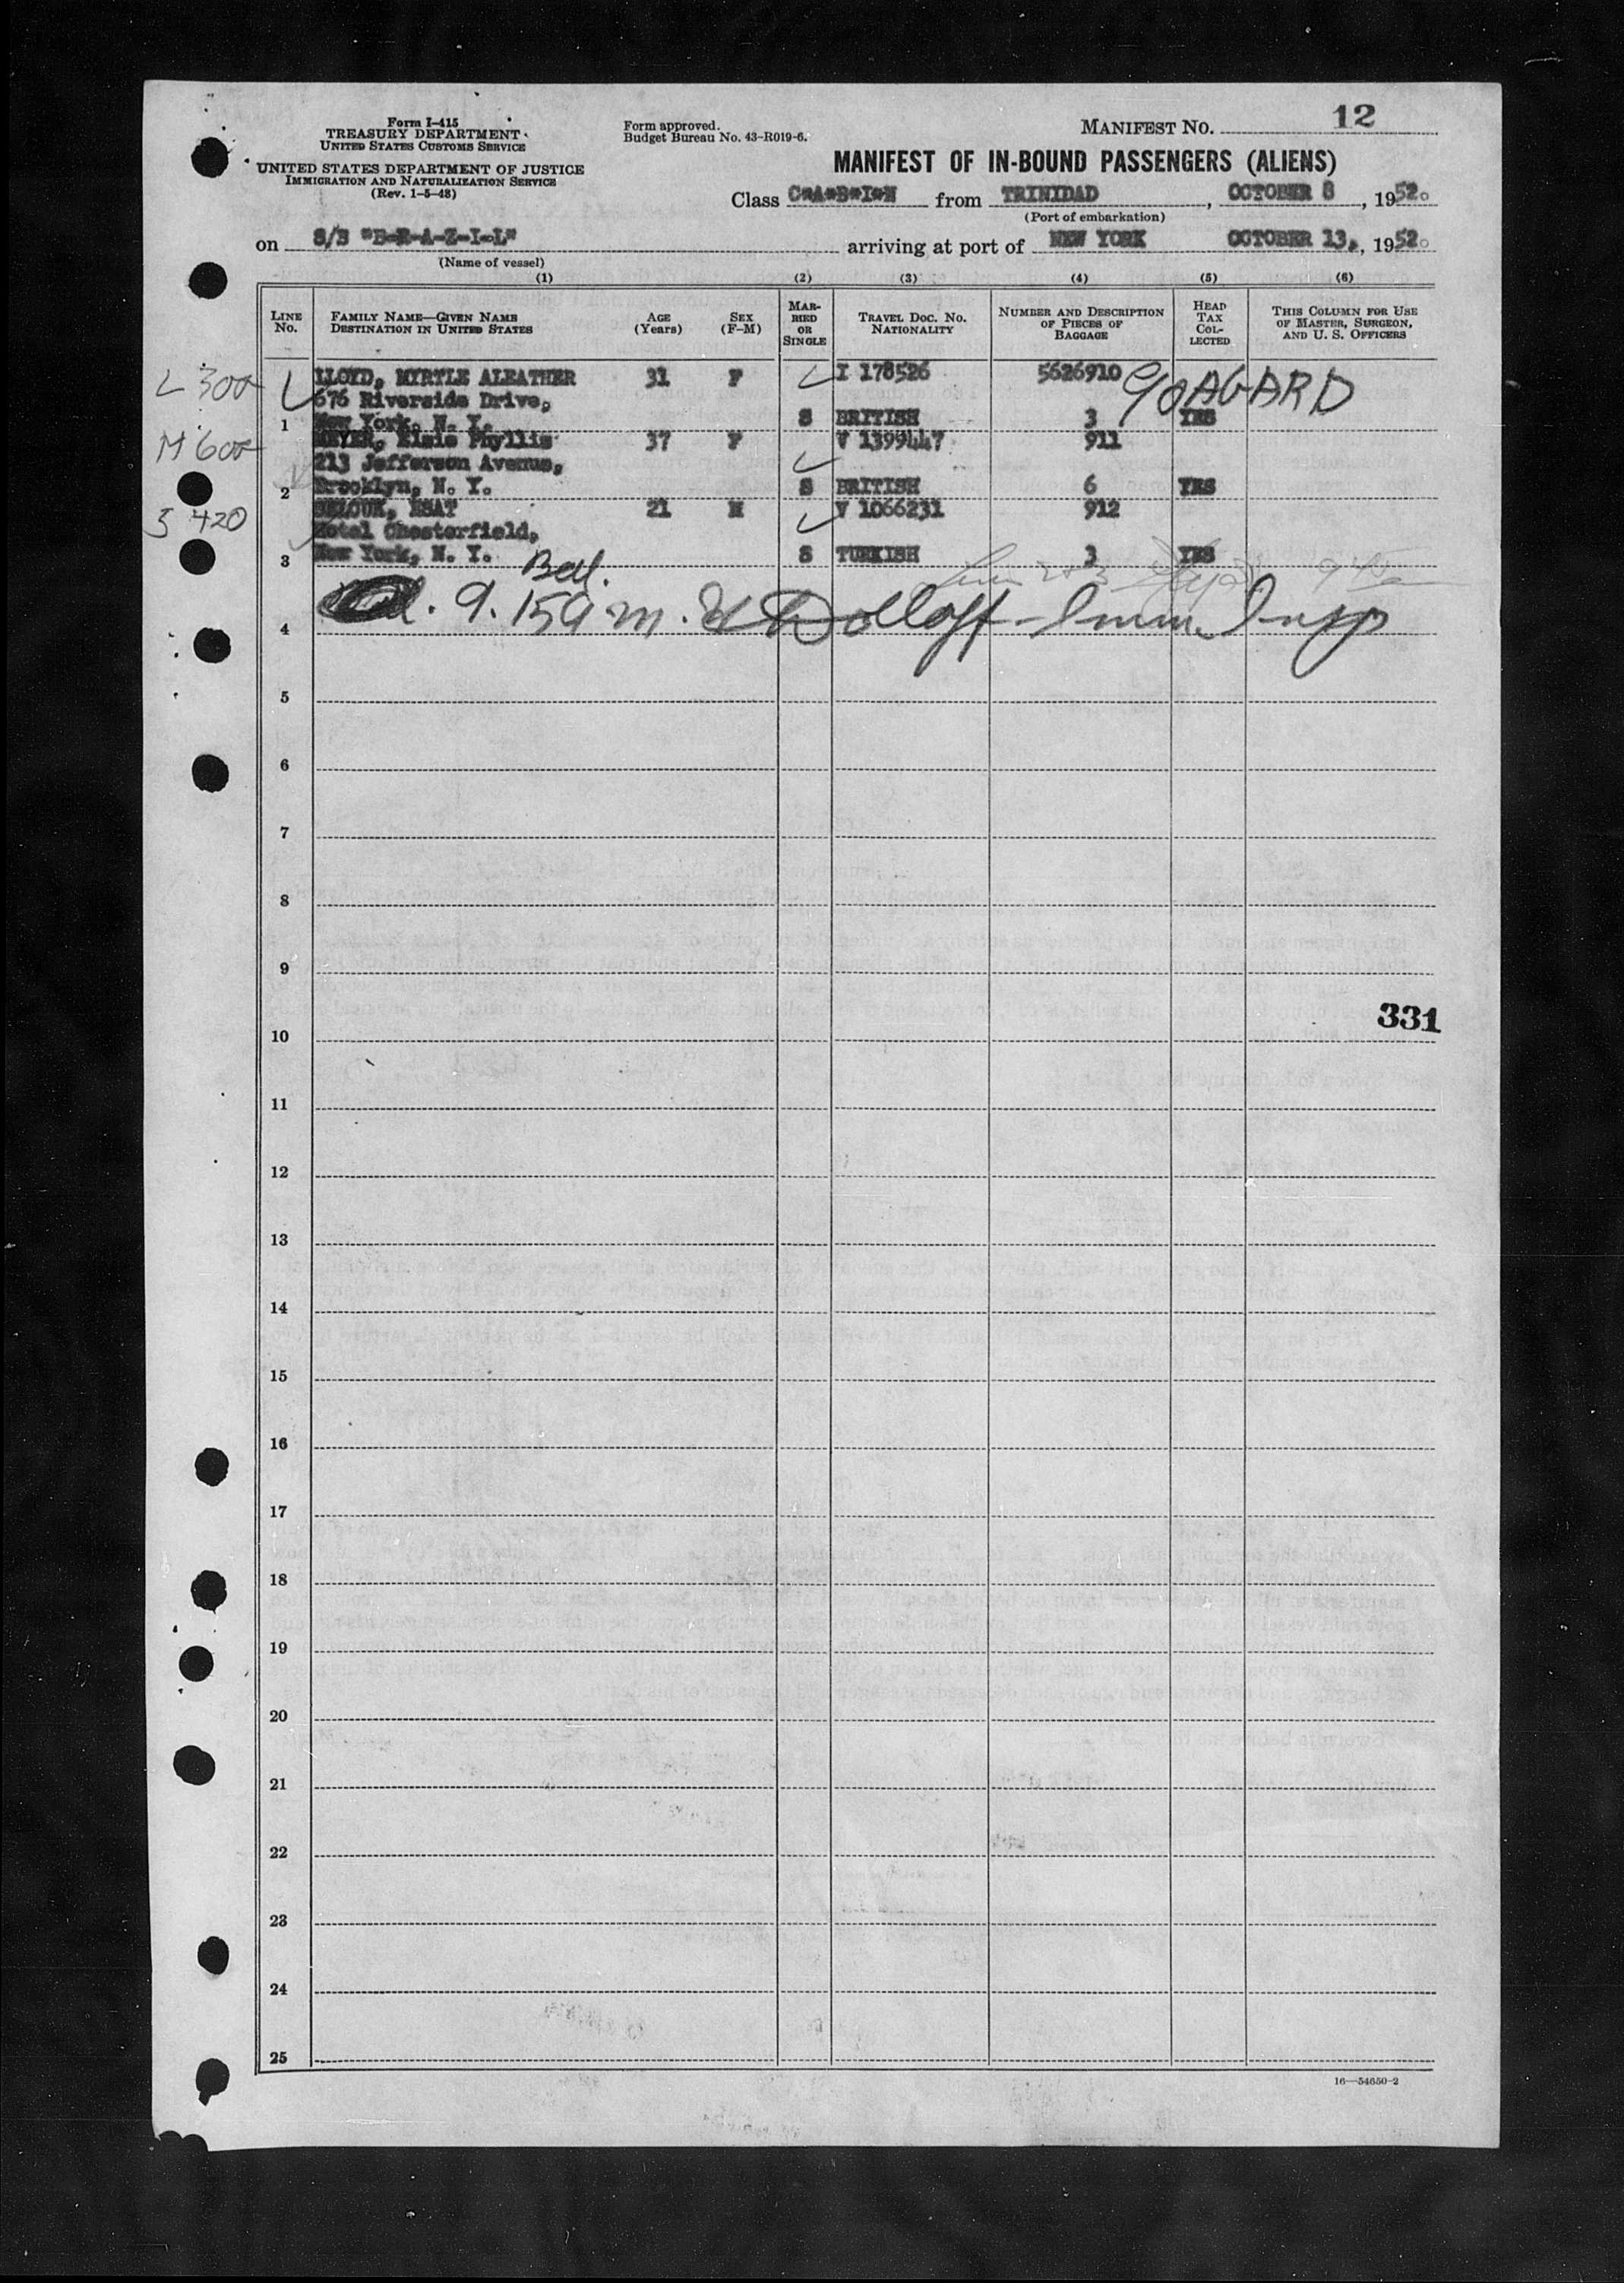 Form I-415
TREASURY DEPARTMENT
UNITED STATES CUSTOMS SERVICE
UNITED STATES DEPARTMENT OF JUSTICE
IMMIGRATION AND NATURALIZATION SERVICE
(Rev. 1-5-48)
Form approved.
Budget Bureau No. 43-R019-6.
MANIFEST NO. 12
MANIFEST OF IN-BOUND PASSENGERS (ALIENS)
Class C*A*B*I*N from TRINIDAD, OCTOBER 8, 1952.
(Port of embarkation)
on S/S "B-R-A-Z-I-L" arriving at port of NEW YORK OCTOBER 13, 1952.
(Name of vessel)
(1) (2) (3) (4) (5) (6)
LINE No. FAMILY NAME—GIVEN NAME DESTINATION IN UNITED STATES AGE (Years) SEX (F-M) MARRIED OR SINGLE TRAVEL DOC. NO. NATIONALITY NUMBER AND DESCRIPTION OF PIECES OF BAGGAGE HEAD TAX COLLECTED THIS COLUMN FOR USE OF MASTER, SURGEON, AND U. S. OFFICERS
L 300 LLOYD, MYRTLE ALEATHER 31 F I 178526 5626910
676 Riverside Drive,
1 New York, N. Y. S BRITISH 3 YES
M 600 MEYER, Elsie Phyllis 37 F V 1399447 911
213 Jefferson Avenue,
2 Brooklyn, N. Y. S BRITISH 6 YES
S 420 SELOUK, ESAT 21 M V 1066231 912
Hotel Chesterfield,
3 New York, N. Y. S TURKISH 3 YES
Bed.
4 9.15 a.m. Dolloff - Imm. Insp
5
6
7
8
9
331
10
11
12
13
14
15
16
17
18
19
20
21
22
23
24
25
16—54650-2